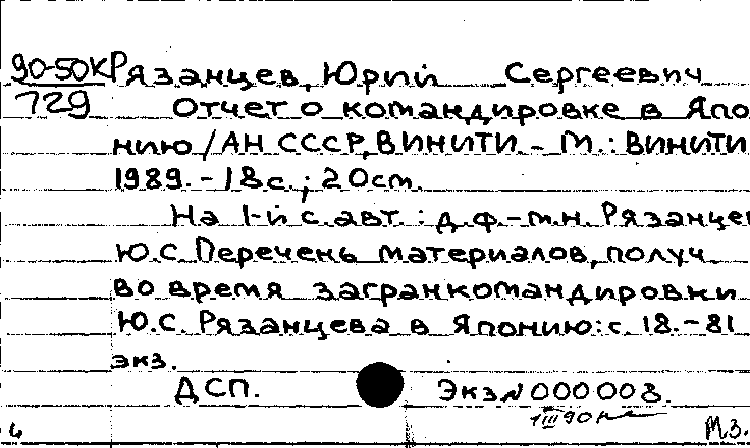 90-50К Рязанцев, Юрий Сергеевич
729 Отчет о командировке в Япо
нию / АН СССР, ВИНИТИ. - М. : ВИНИТИ
1989. - 18 с. ; 20 см.
На 1-й с. авт. : д.ф.-м.н. Рязанцев
Ю.С. Перечень материалов, получ.
во время загранкомандировки
Ю.С. Рязанцева в Японию: с. 18. - 81
экз.
ДСП. Экз N 000008.
1 III 90
М.З.